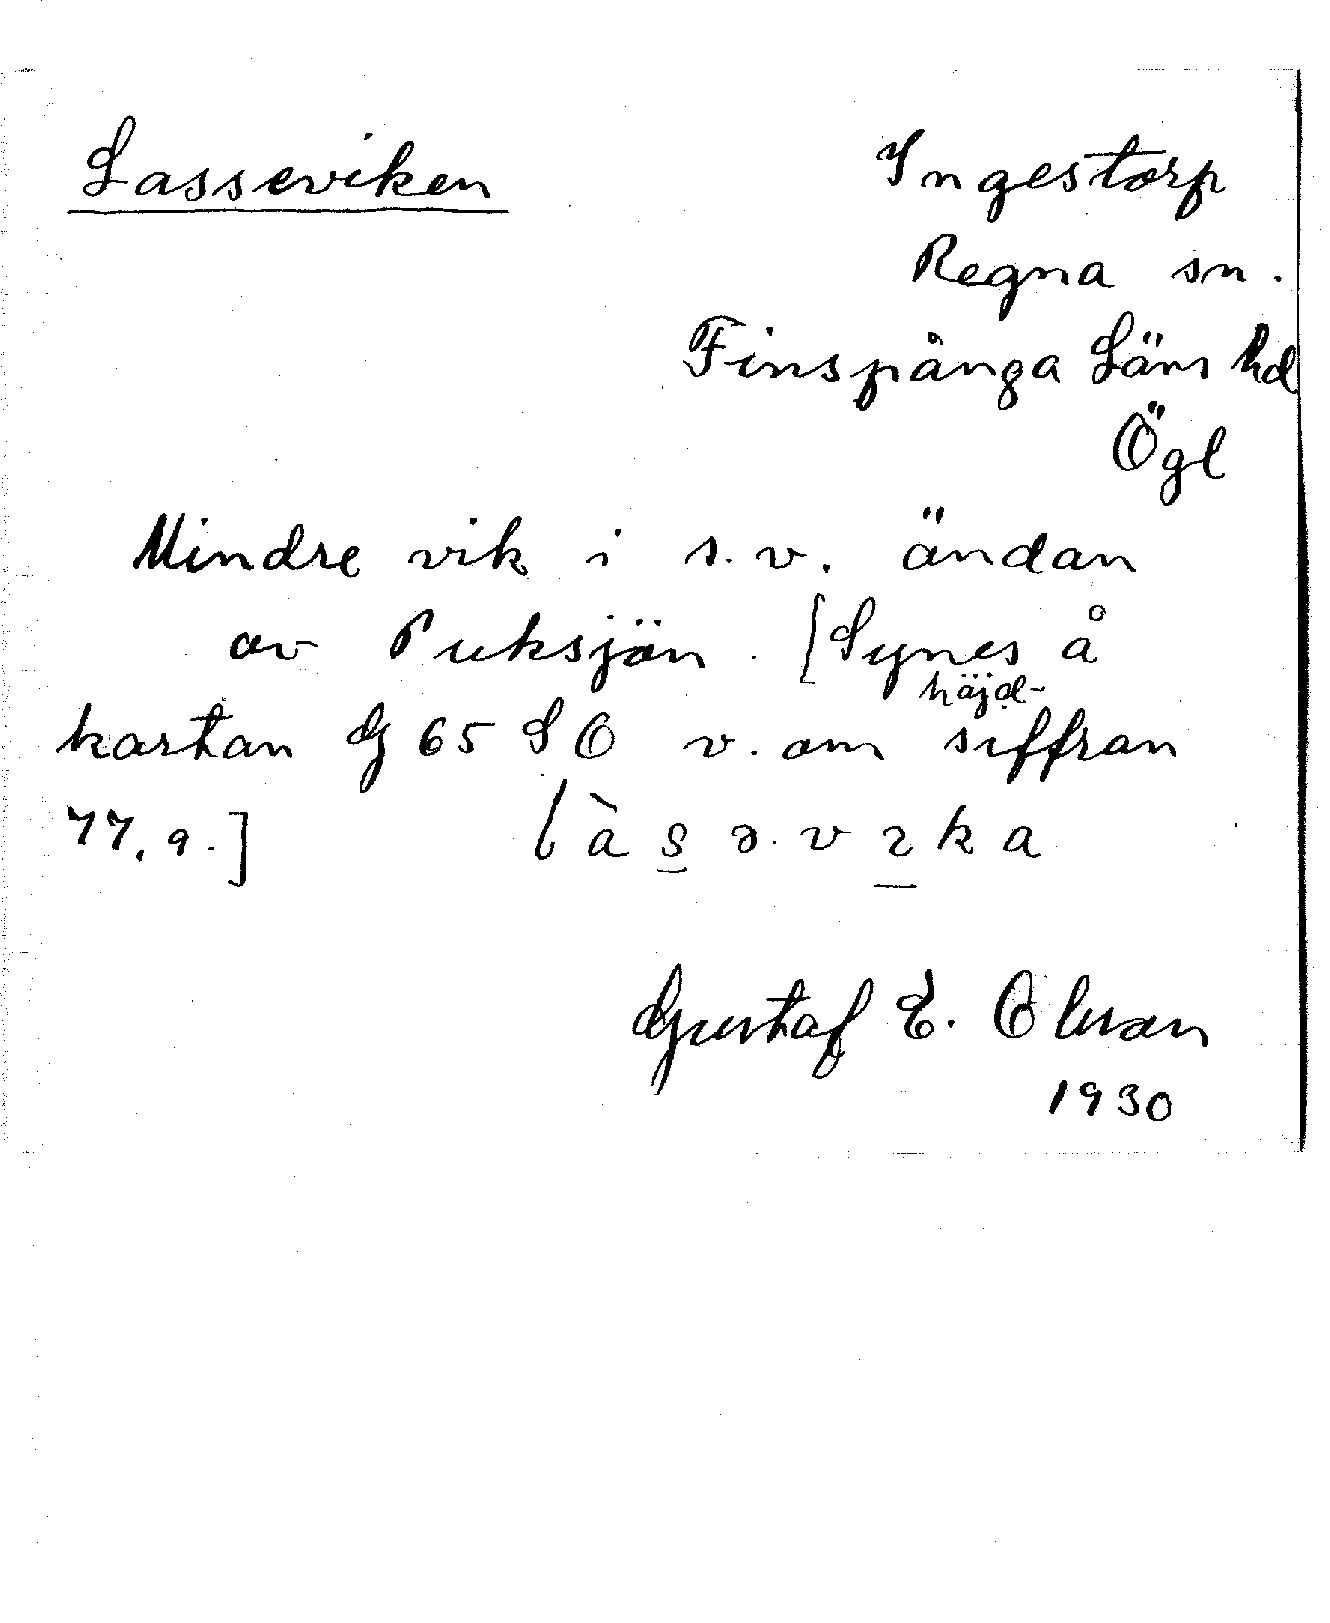 Lasseviken
Ingestorp
Regna sn.
Finspånga Läns hd
Ögl
Mindre vik i s.v. ändan
av Puksjön. [Synes å
kartan G 65 SO v. om höjd-
siffran
77.9.]
Gustaf E. Olsson
1930